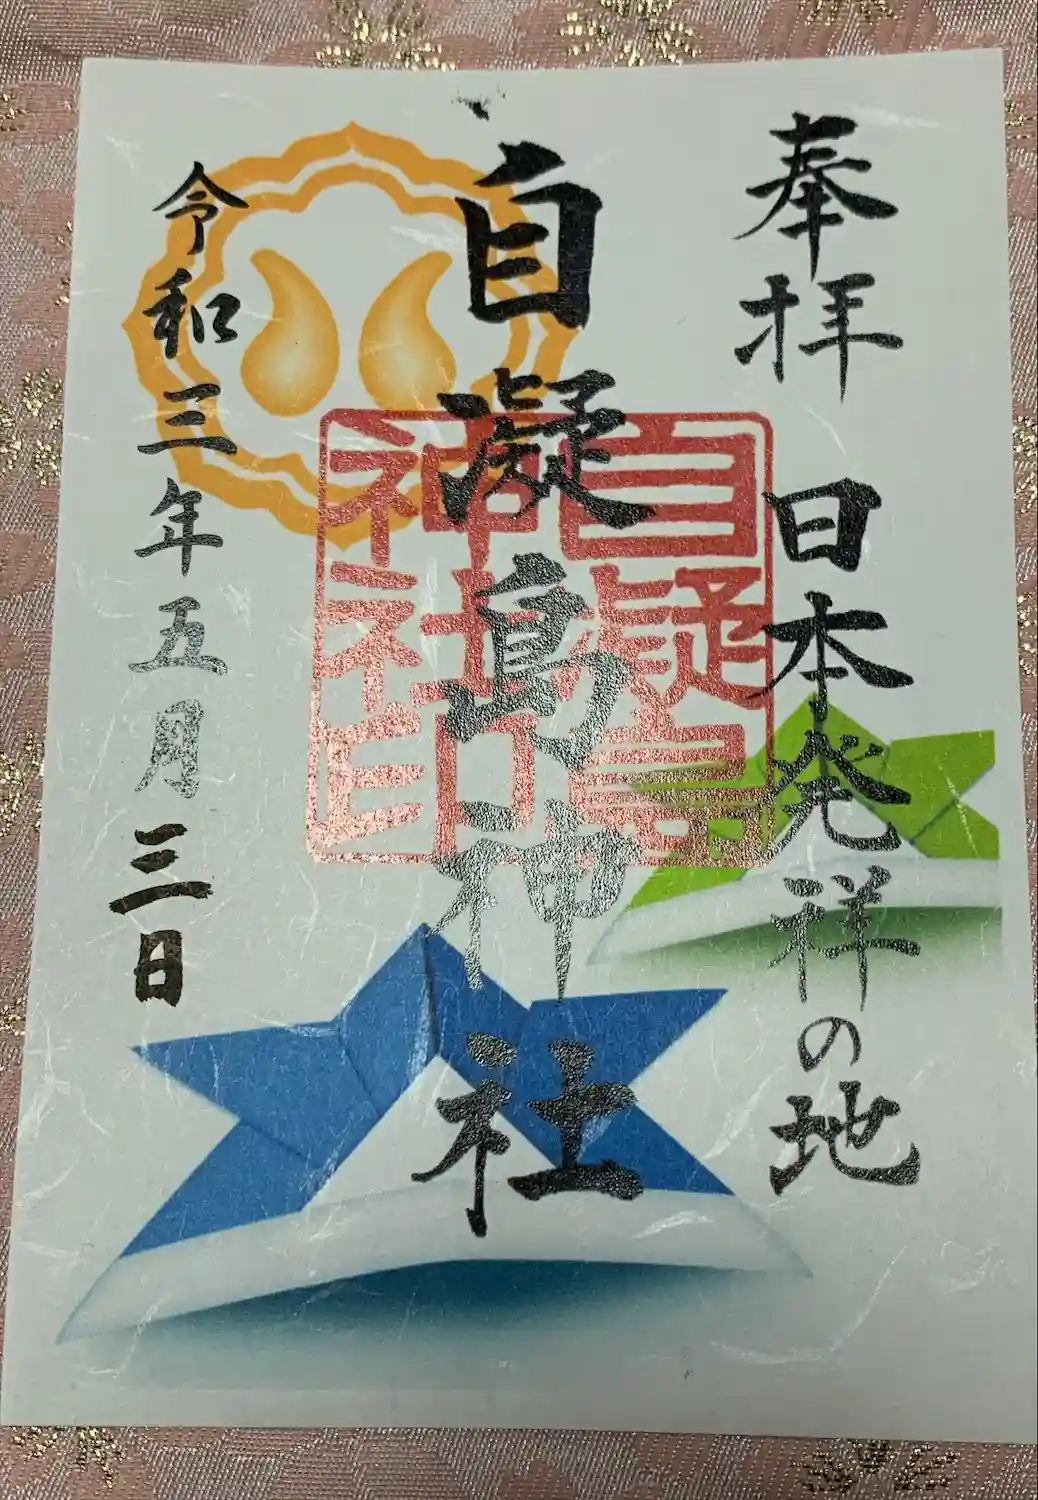 奉拝 日本発祥の地
自凝島神社
自凝島
神社印
令和三年五月三日